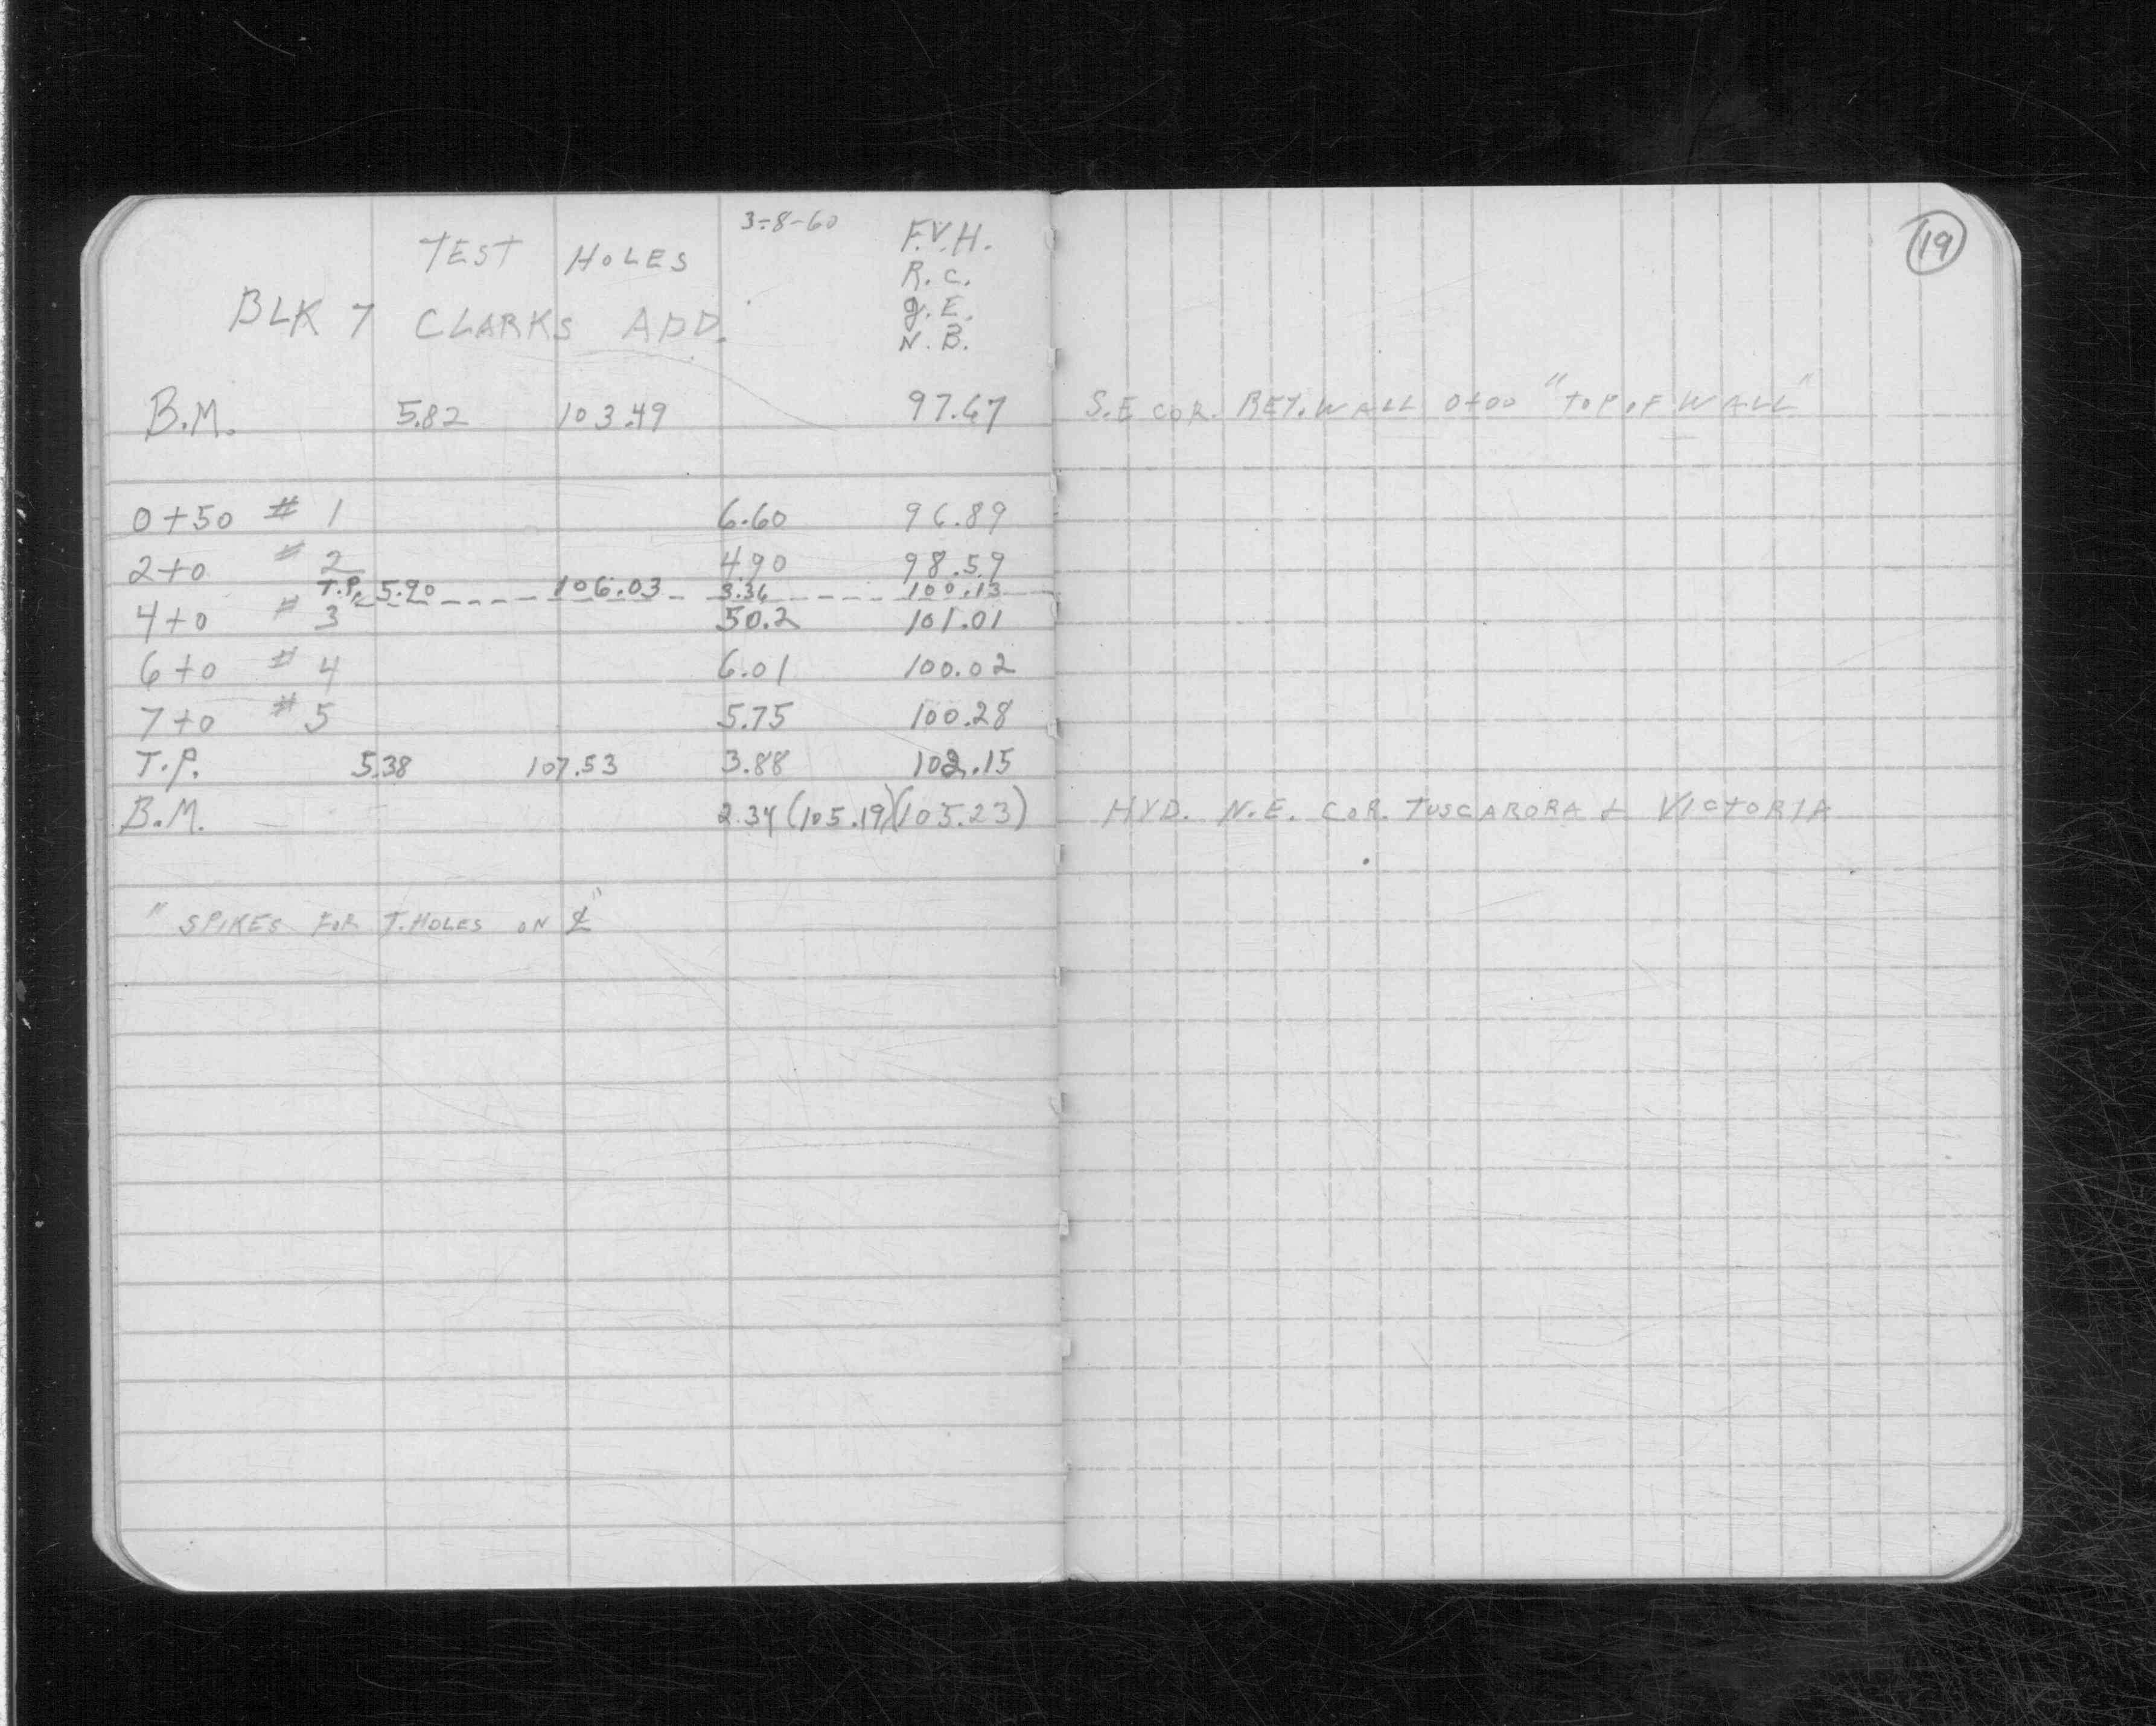 3-8-60 F.V.H.
TEST HOLES R.C.
BLK 7 CLARKS ADD. J.E.
N.B.
19
B.M. 5.82 103.49 97.67 S.E COR. RET. WALL 0+00 "TOP OF WALL"
0+50 # 1 6.60 96.89
2+0 # 2 490 98.59
T.P. 5.90 106.03 3.36 100.13
4+0 # 3 50.2 101.01
6+0 # 4 6.01 100.02
7+0 # 5 5.75 100.28
T.P. 5.38 107.53 3.88 102.15
B.M. 2.34 (105.19)(105.23) HYD. N.E. COR. TUSCARORA & VICTORIA
"SPIKES FOR T.HOLES ON ℄"